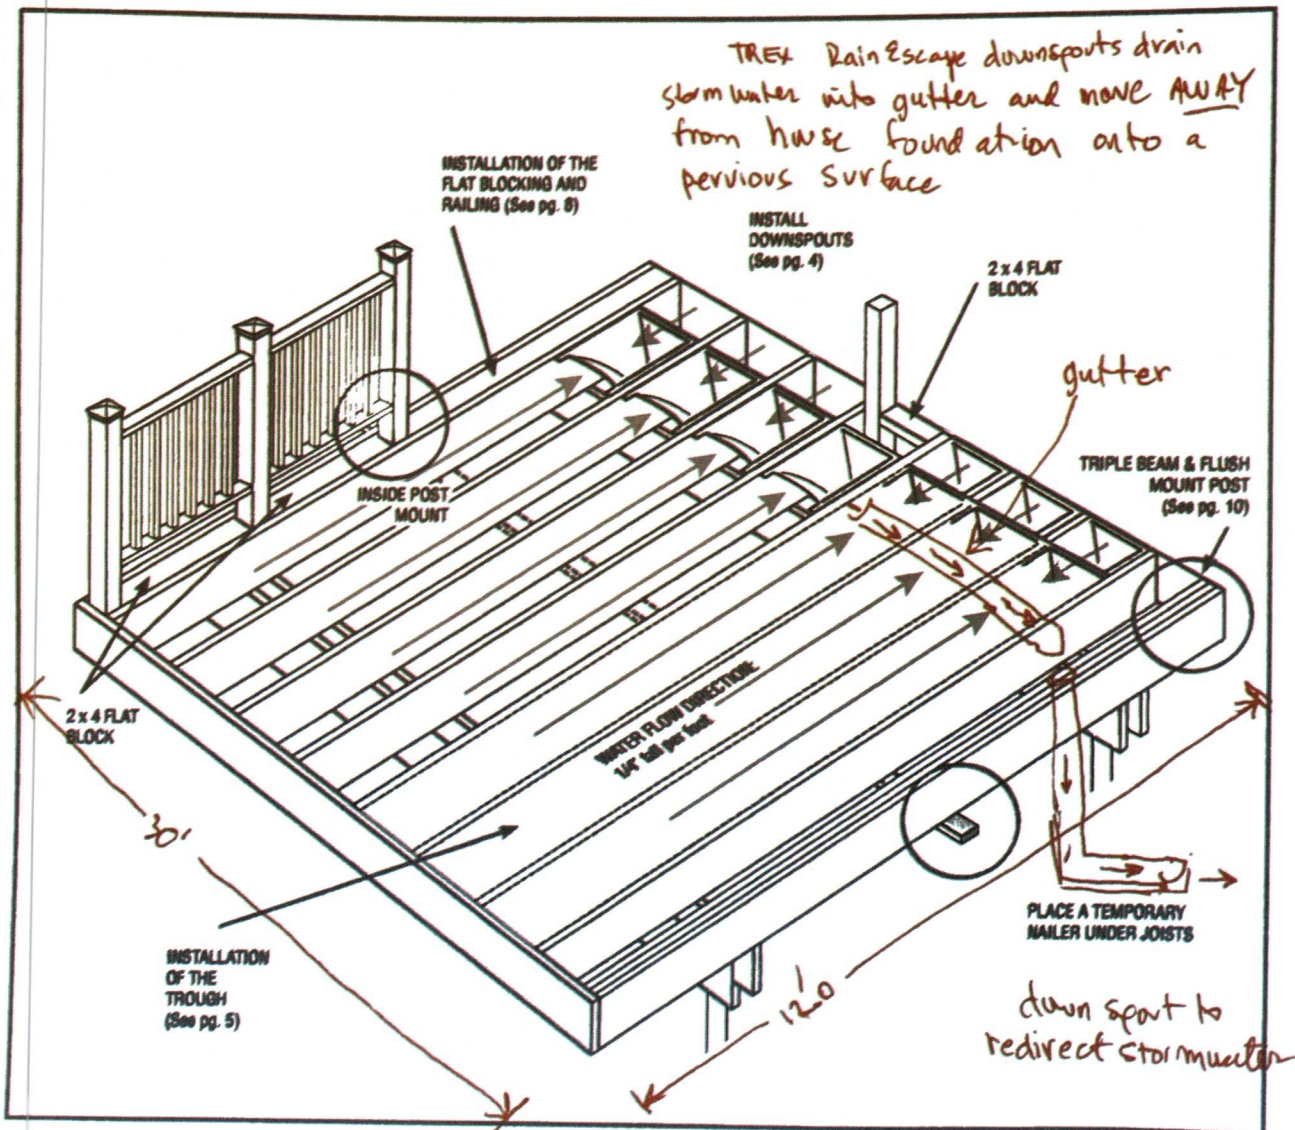 TREX RainEscape downspouts drain
stormwater into gutter and move AWAY
from house foundation onto a
pervious surface
INSTALLATION OF THE
FLAT BLOCKING AND
RAILING (See pg. 8)
INSTALL
DOWNSPOUTS
(See pg. 4)
2 x 4 FLAT
BLOCK
gutter
TRIPLE BEAM & FLUSH
MOUNT POST
(See pg. 10)
INSIDE POST
MOUNT
2 x 4 FLAT
BLOCK
WATER FLOW DIRECTION:
1/4" fall per foot
30'
INSTALLATION
OF THE
TROUGH
(See pg. 5)
PLACE A TEMPORARY
NAILER UNDER JOISTS
12'0
down spout to
redirect stormwater